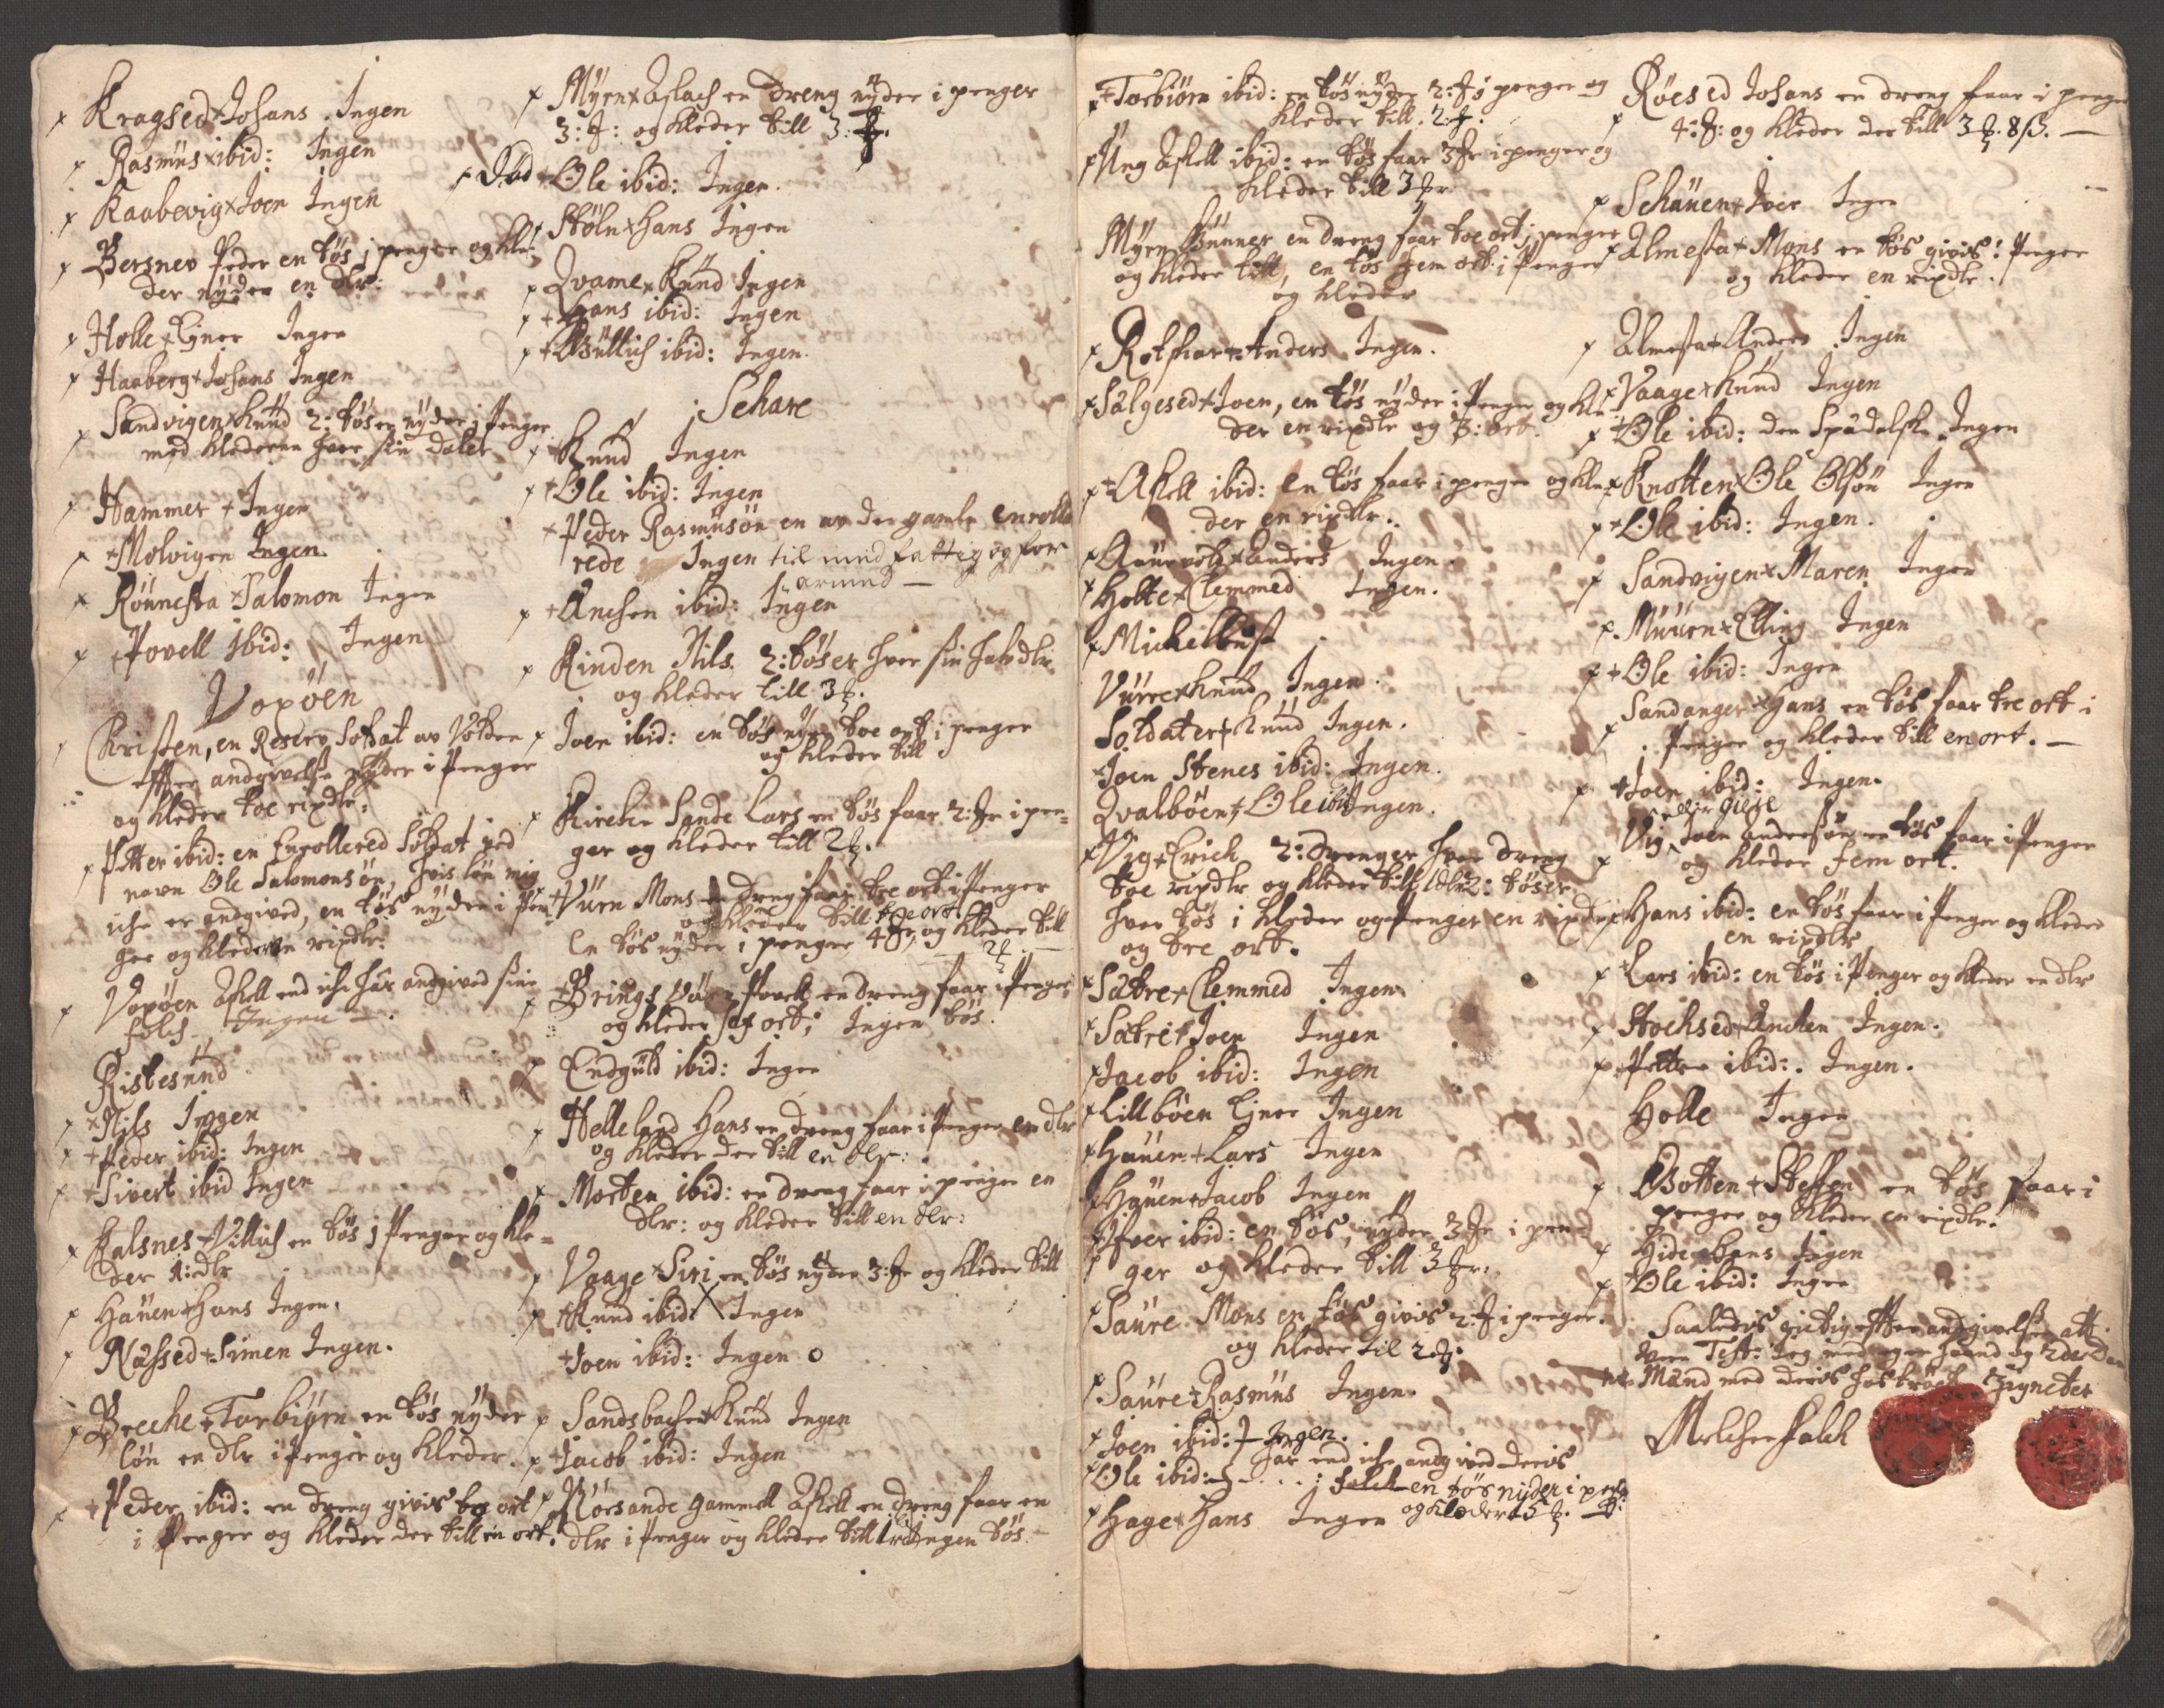 Kragsed Johans Ingen
Rasmus ibid: Ingen
Kaabevig Joen Ingen
Bersnev Peder en tøs i penger og kle-
der nÿder en dlr:
Holle Ejner Ingen
Haaberg Johans Ingen
Sandvigen Knud 2: tøser nÿder i Penger
med klederne hver sin daler
Hammer Ingen
Molvigen Ingen
Rønnesta Salomon Ingen
Povell ibid: Ingen
Voxøen
Christen, en Reserv Soldat av Volden
effter andgivelse nÿder i Penger
og kleder toe rixdlr:
Petter ibid: en Enrollered Soldat ved
navn Ole Salomonsøn, hvis løn mig
iche er andgived, en tøs nÿder i Pen-
ger og kleder en rixdlr:
Voxøen Askell end iche har andgived sine
folch Ingen
Ristesund
Nils Ingen
Peder ibid: Ingen
Sivert ibid Ingen
Kalsnes Villich en tøs i Penger og kle-
der 1: dlr
Hauen Hans Ingen.
Nassed Simen Ingen.
Breche Torbiørn en tøs nÿder
løn en dlr i Penger og kleder.
Peder ibid: en dreng givis toe ort
i Penger og kleder der till en ort.
Mÿrn Aslach en dreng nÿder i penger
3: og kleder till 3:
Død Ole ibid: Ingen.
Støln Hans Ingen
Qvame Knud Ingen
Hans ibid: Ingen
Willich ibid: Ingen.
Schare
Knud Ingen
Ole ibid: Ingen
Peder Rasmusøn en av de gamle enrolle
rede Ingen til med fattig og for
armed
Anchen ibid: Ingen
Rinden Nils 2: tøser hver sin halv dlr
og kleder till 3
Joen ibid: en tøs nÿder toe ort i penger
og kleder till
Kirche Sande Lars en tøs faar 2: i pen-
ger og kleder till 2
Vürn Mons en dreng faar tre ort i Penger
og kleder till tre ort
En tøs nÿder i penger 4 og kleder till
2
Brings Vor Povell en dreng faar i Penger
og kleder sex ort; Ingen tøs.
Endguld ibid: Ingen
Helleland Hans en dreng faar i Penger en dlr
og kleder der till en dlr:
Morten ibid: en dreng faar i penger en
dlr: og kleder till en dlr:
Vaage Siri en tøs nÿder 3: og kleder till
Knud ibid: Ingen
Joen ibid: Ingen
Sandsbache Knud Ingen
Jacob ibid: Ingen
Rørsande gammell Askell en dreng faar en
dlr i Penger og kleder till 1 Ingen tøs.
Torbiørn ibid: en tøs nÿder 2: i penger og
kleder till 2
Ung Askell ibid: en tøs faar 3 i penger og
kleder till 3
Mÿrn Gunner en dreng faar toe ort i penger
og kleder till, en tøs fem ort i Penger
og kleder
Kolhar Anders Ingen.
Salgesed Joen, en tøs nÿder i Penger og kle-
der en rixdlr og 3: ort.
Askell ibid: en tøs faar i penger og kle-
der en rixdlr.
Anders Ingen.
Holte Clemmed Ingen.
Michelbust
Vürre Knud Ingen.
Soldater Knud Ingen.
Joen Stenes ibid: Ingen.
Qvalbøen Ole ibid Ingen.
Vig Erich 2: drenger hver dreng
toe rixdlr og kleder till 1 dlr 2: tøser
hver tøs i kleder og Penger en rixdlr
og tre ort.
Sætre Clemmed Ingen
Sætre Joen Ingen
Jacob ibid: Ingen
Lillbøen Ejner Ingen
Hauen Lars Ingen
Hauen Jacob Ingen
Iver ibid: en tøs, nÿder 3 i pen-
ger og kleder till 3
Saure Mons en tøs givis 2 i penger.
og kleder til 2
Saure Rasmus Ingen.
Joen ibid: Ingen.
har end iche andgived deris
Ole ibid: folch en tøs nÿder i peng
Hage Hans Ingen og Kleder 5
Røesed Johans en dreng faar i penger
4: og kleder der till 3 8 ß.
Schauen Iver Ingen
Almesta Mons en tøs givis i Penger
og kleder en rixdlr.
Almesta Anders Ingen
Vaage Knud Ingen
Ole ibid: den Spedalske Ingen
Knotten Ole Olsøn Ingen
Ole ibid: Ingen.
Sandvigen Maren Ingen
Muurn Elling Ingen
Ole ibid: Ingen
Sandanger Hans en tøs faar tre ort i
Penger og kleder till en ort.
Joen ibid: Ingen.
Vig Joen andersøn en tøs faar i Penger
og kleder fem ort.
Hans ibid: en tøs faar i Penger og kleder
en rixdlr
Lars ibid: en tøs i Penger og kleder en dlr
Stochsed Anchen Ingen.
Petter ibid: Ingen.
Holle Ingen
Botten Steffen en tøs faar i
penger og kleder en rixdlr.
Hide Hans Ingen
Ole ibid: Ingen
Saaledis rigtig effter andgivelsen att
være Test: Jeg med egen haand og
Mænd med deris hos trögt Zigneter
Melcher Falch